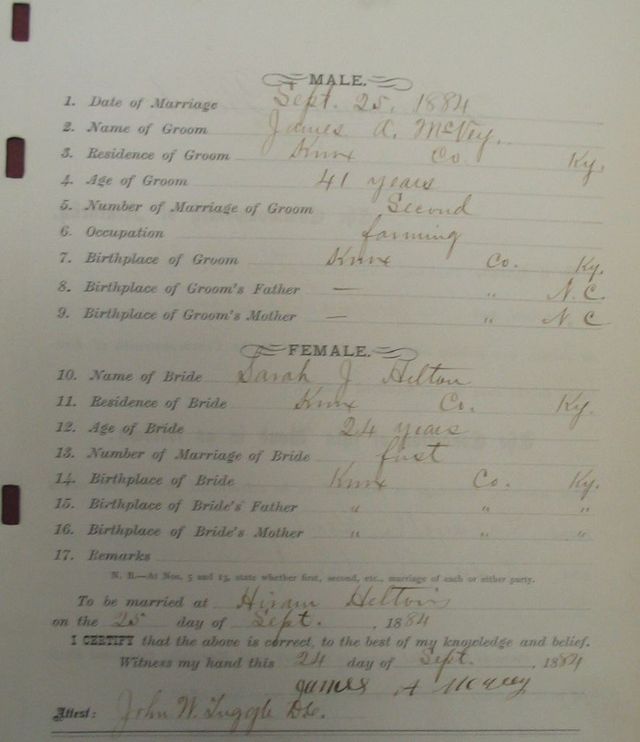 MALE.
1. Date of Marriage Sept. 25, 1884
2. Name of Groom James A. McVey.
3. Residence of Groom Knox Co Ky.
4. Age of Groom 41 years
5. Number of Marriage of Groom Second
6. Occupation farming
7. Birthplace of Groom Knox Co. Ky.
8. Birthplace of Groom's Father — " N.C.
9. Birthplace of Groom's Mother — " N C
FEMALE.
10. Name of Bride Sarah J. Helton
11. Residence of Bride Knox Co. Ky.
12. Age of Bride 24 years
13. Number of Marriage of Bride first
14. Birthplace of Bride Knox Co. Ky.
15. Birthplace of Bride's Father " " "
16. Birthplace of Bride's Mother " " "
17. Remarks
N. B.—At Nos. 5 and 13, state whether first, second, etc., marriage of each or either party.
To be married at Hiram Heltons
on the 25 day of Sept. , 1884
I CERTIFY that the above is correct, to the best of my knowledge and belief.
Witness my hand this 24 day of Sept. , 1884
James A McVey
Attest: John W. Tuggle D.c.